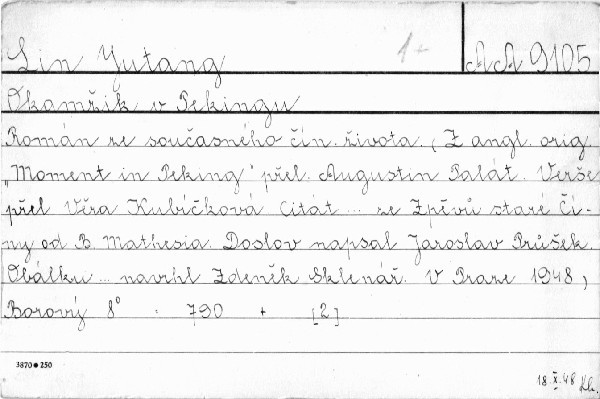 Lin Yutang 1- AA 9105
Okamžik v Pekingu
Román ze současného čín. života. (Z angl. orig.
„Moment in Peking" přel. Augustin Palát. Verše
přel Věra Kubíčková Citát ... ze Zpěvů staré Čí-
ny od B. Mathesia. Doslov napsal Jaroslav Průšek.
Obálku ... navrhl Zdeněk Sklenář. V Praze 1948,
Borový 8° : 790 + [2]
3870 ● 250
18.X.48 Kh.